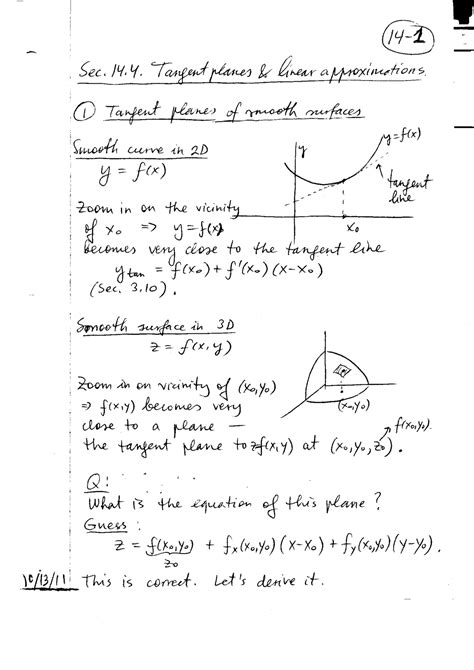 14-1
Sec. 14.4. Tangent planes & linear approximations.
① Tangent planes of smooth surfaces
Smooth curve in 2D
y = f(x)
y
y=f(x)
tangent
line
x₀
Zoom in on the vicinity
of x₀ => y=f(x)
becomes very close to the tangent line
y_tan = f(x₀) + f'(x₀)(x-x₀)
(Sec. 3.10).
Smooth surface in 3D
z = f(x,y)
Zoom in on vicinity of (x₀,y₀)
=> f(x,y) becomes very
close to a plane —
(x₀,y₀)
f(x₀,y₀).
the tangent plane to z=f(x,y) at (x₀,y₀,z₀).
Q:
What is the equation of this plane?
Guess:
z = f(x₀,y₀) + fₓ(x₀,y₀)(x-x₀) + f_y(x₀,y₀)(y-y₀).
z₀
10/13/11 This is correct. Let's derive it.